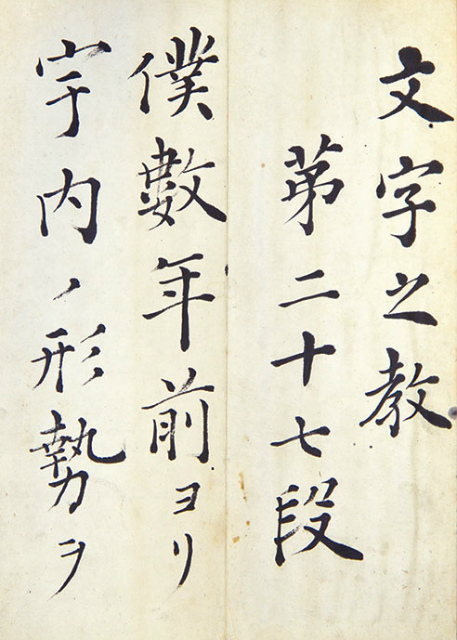 文字之教
第二十七段
僕數年前ヨリ
宇内ノ形勢ヲ